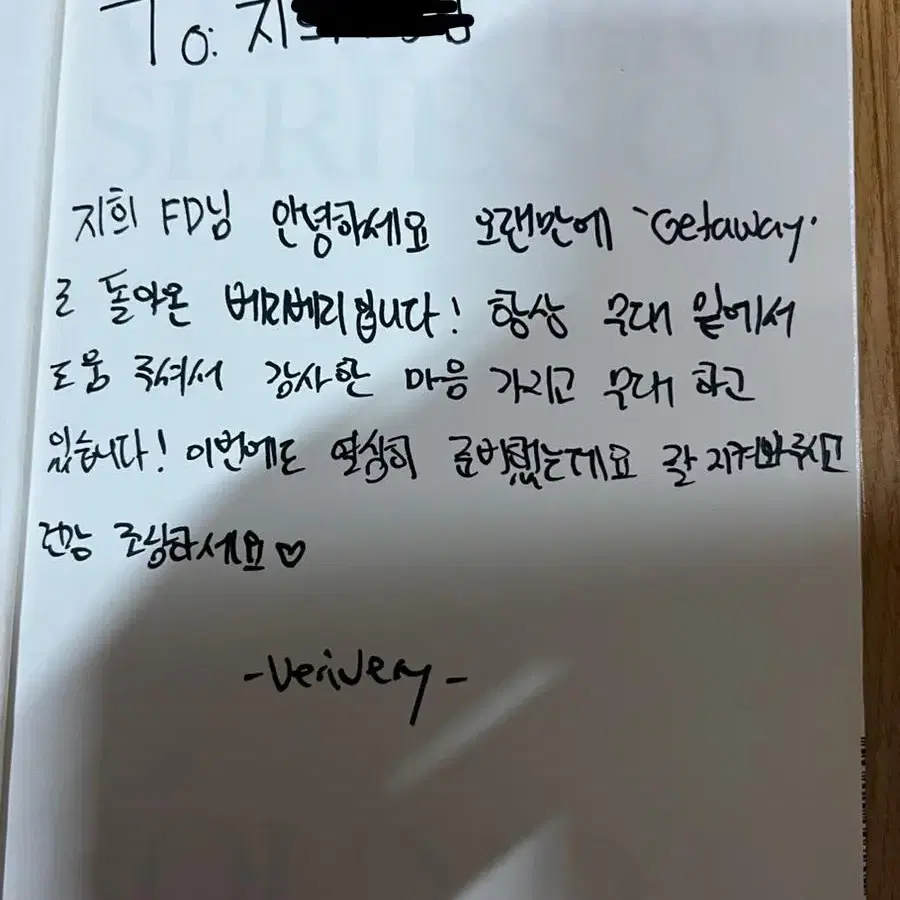 To: 지
SERIES O
지희 FD님 안녕하세요 오랜만에 'Getaway'
로 돌아온 베리베리입니다! 항상 무대 밑에서
도움 주셔서 감사한 마음 가지고 무대 하고
있습니다! 이번에도 열심히 준비했는데요 잘 지켜봐주시고
건강 조심하세요♡
-VeriVery-